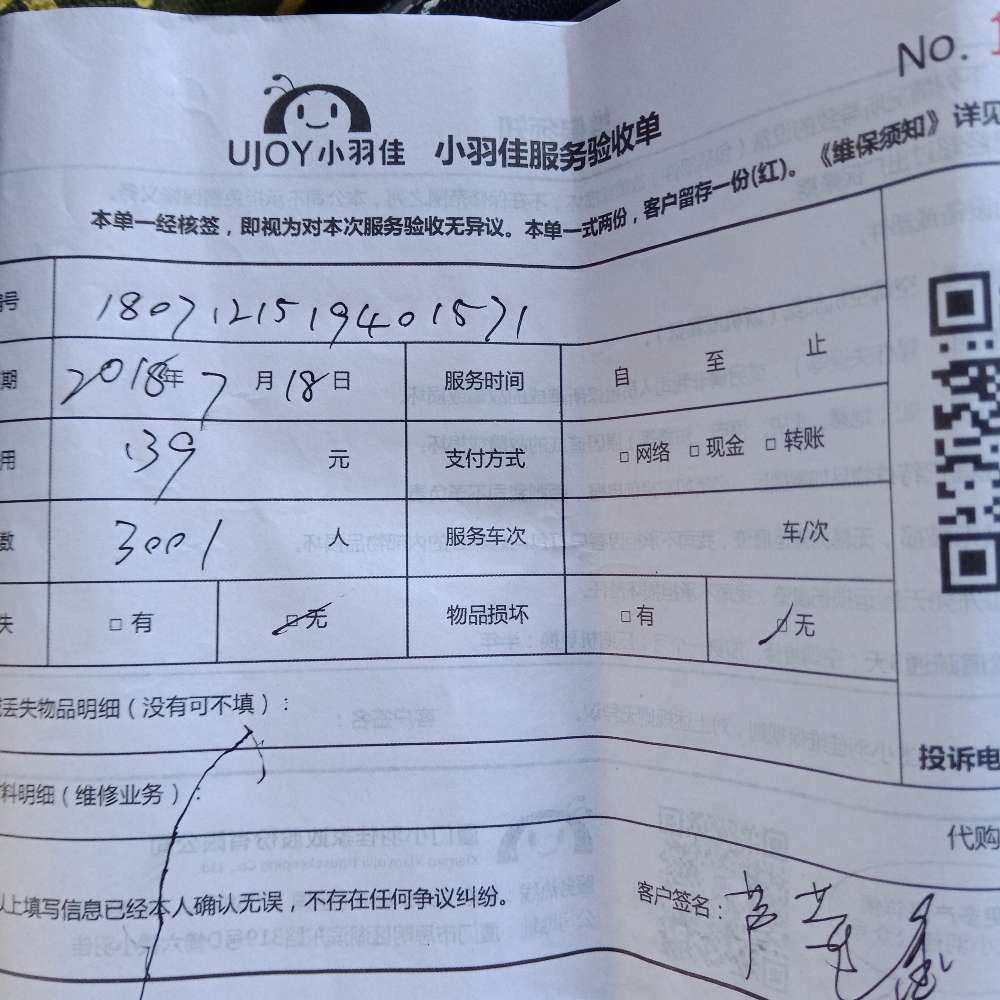 No. 1
UJOY小羽佳 小羽佳服务验收单
本单一经核签，即视为对本次服务验收无异议。本单一式两份，客户留存一份(红)。《维保须知》详见
号 1807121519401571
期 2018年7月18日 服务时间 自 至 止
用 139 元 支付方式 □网络 □现金 □转账
数 3001 人 服务车次 车/次
失 □有 □无 物品损坏 □有 □无
丢失物品明细（没有可不填）：
料明细（维修业务）：
投诉电
代购
以上填写信息已经本人确认无误，不存在任何争议纠纷。
客户签名：